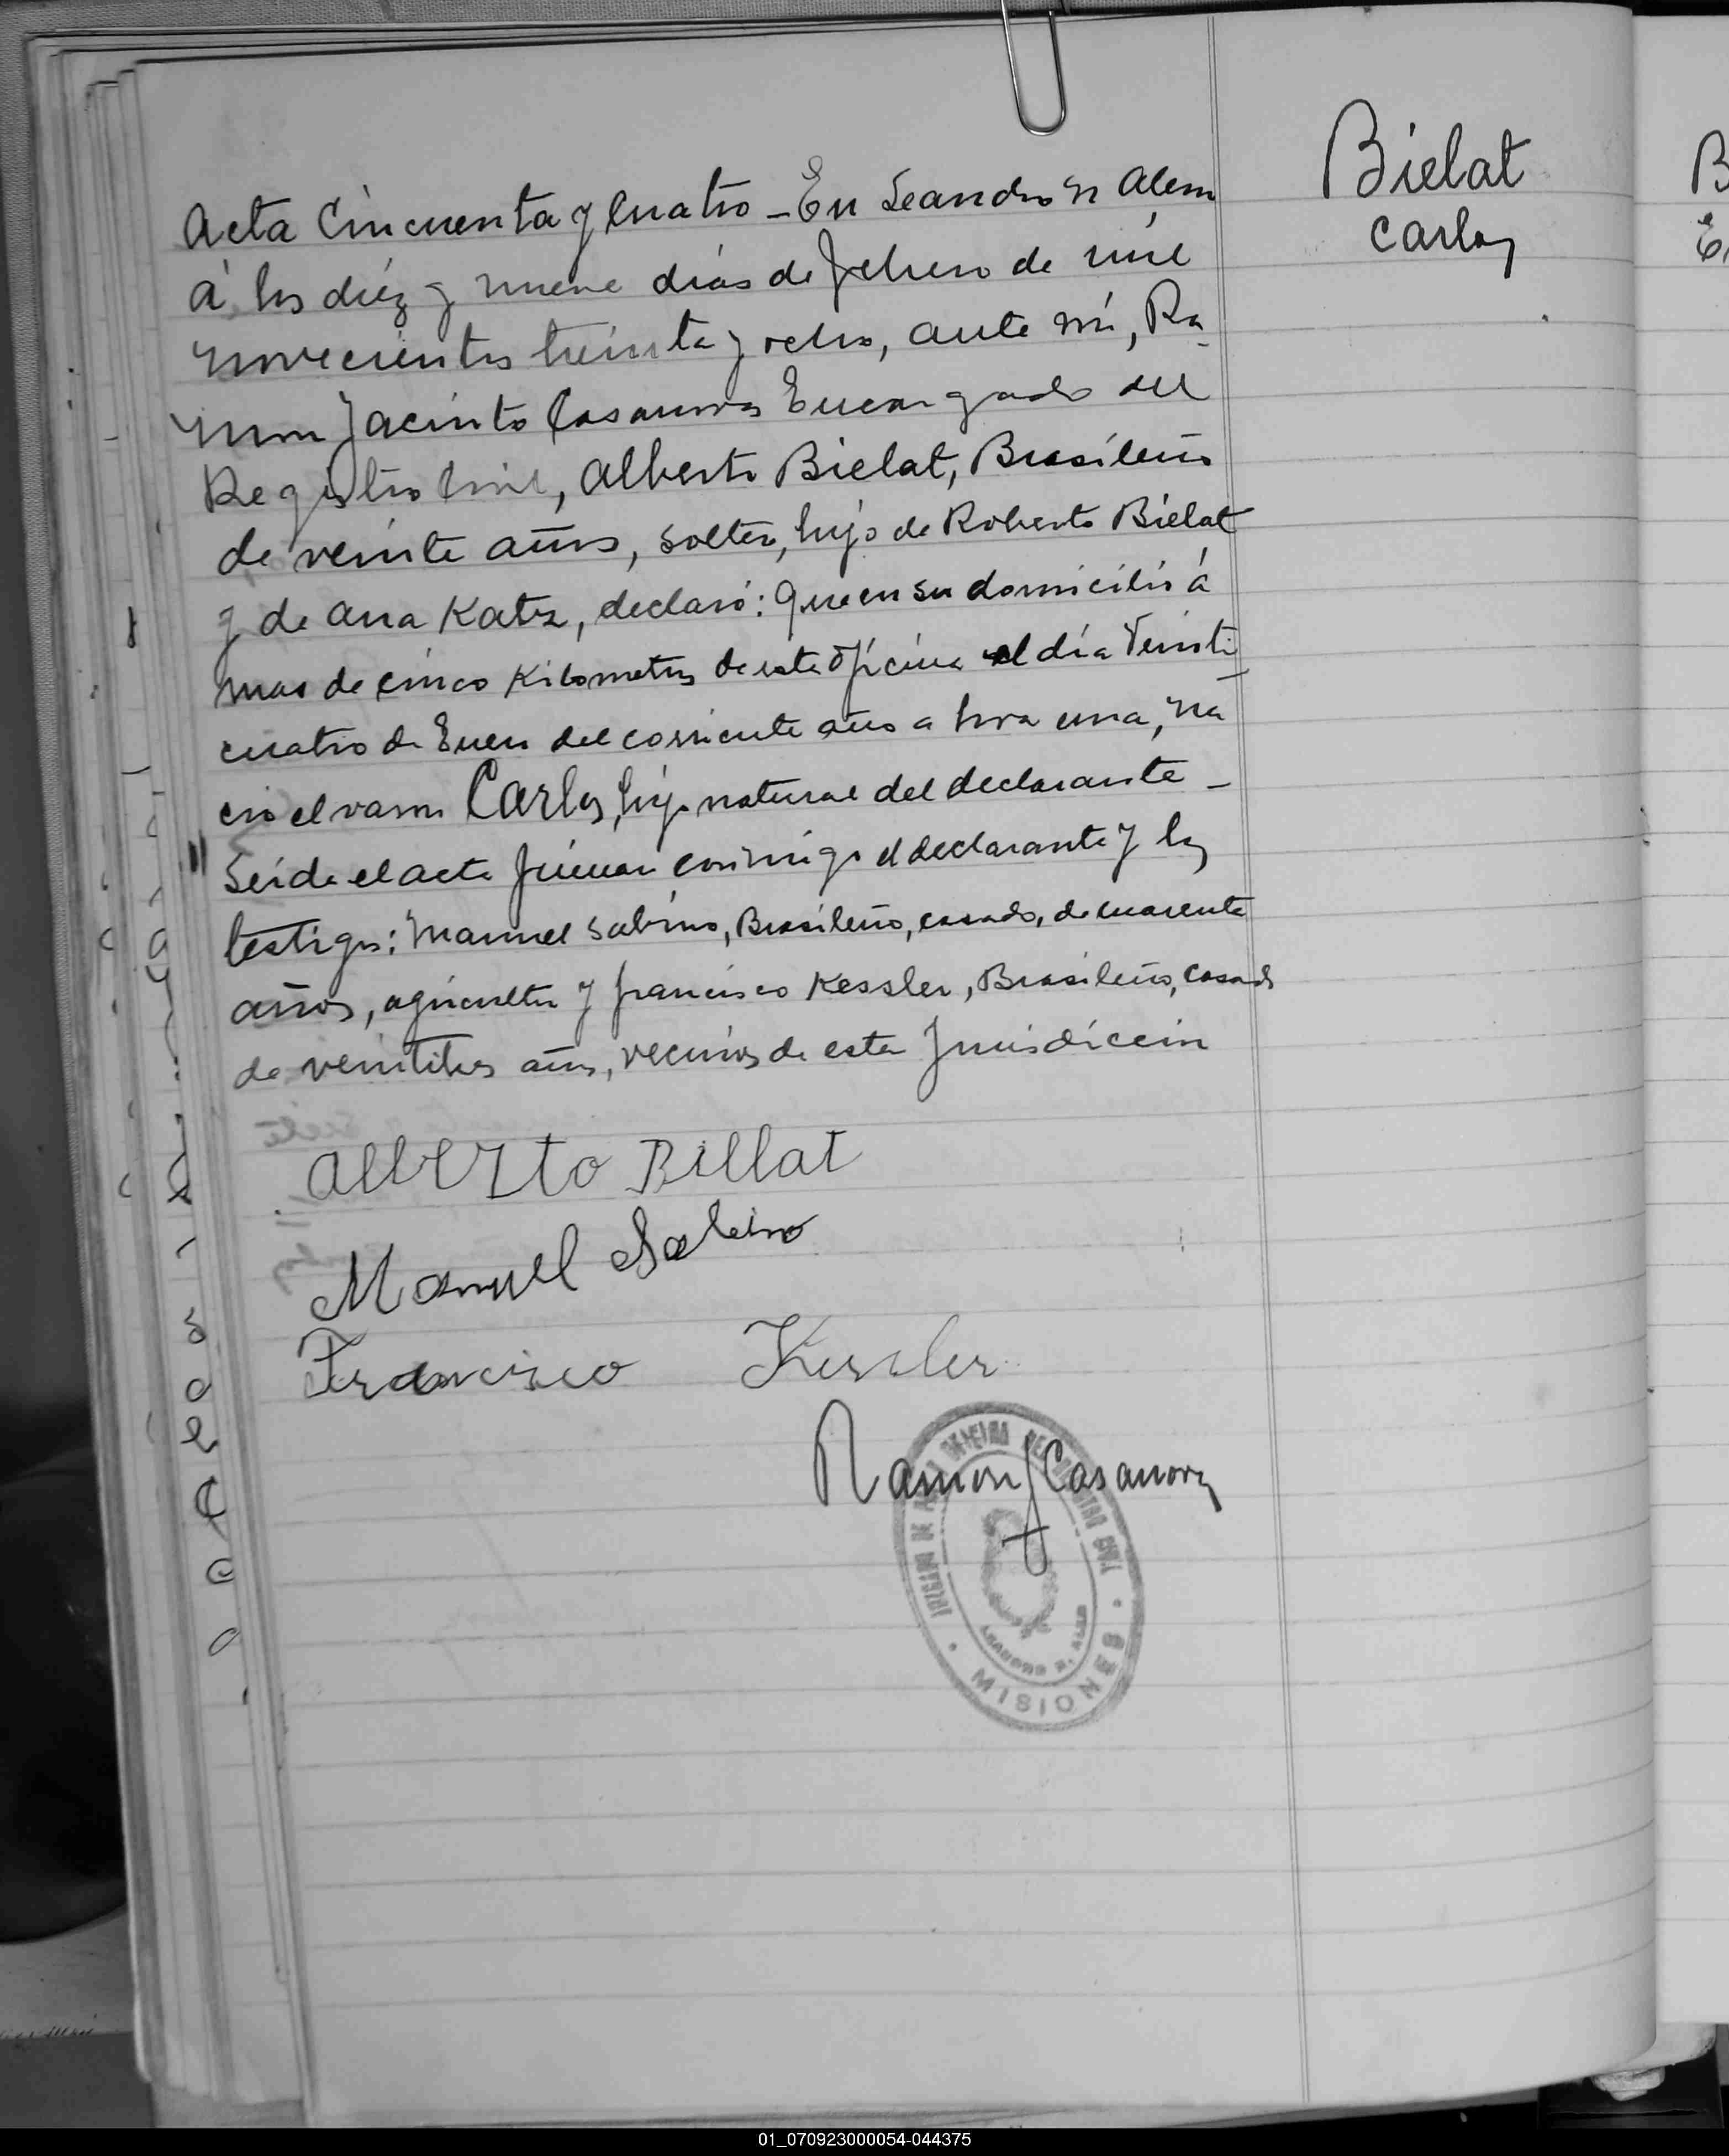 Acta Cincuenta y Cuatro _ En Leandro N Alem
á los diéz y nueve días de febrero de mil
novecientos treinta y ocho, ante mí, Ra_
món Jacinto Casanova Encargado del
Registro Civil, Alberto Bielat, Brasileño
de veinte años, soltero, hijo de Roberto Bielat
y de Ana Katz, declaró: Que en su domicilio á
mas de cinco Kilometros de esta Oficina el día Veinti_
cuatro de Enero del corriente año a hora una, na
ció el varon Carlos, hijo natural del declarante _
Leída el acta firman conmigo el declarante y los
testigos: Manuel Sabino, Brasileño, casado, de cuarenta
años, agricultor y francisco Kessler, Brasileño, casado
de veintitres años, vecinos de esta Jurisdiccion
Alberto Billat
Manuel Sabino
Francisco Kessler
Ramon J Casanova
REGISTRO CIVIL
LEANDRO N. ALEM
MISIONES
Bielat
Carlos
B
01_070923000054-044375